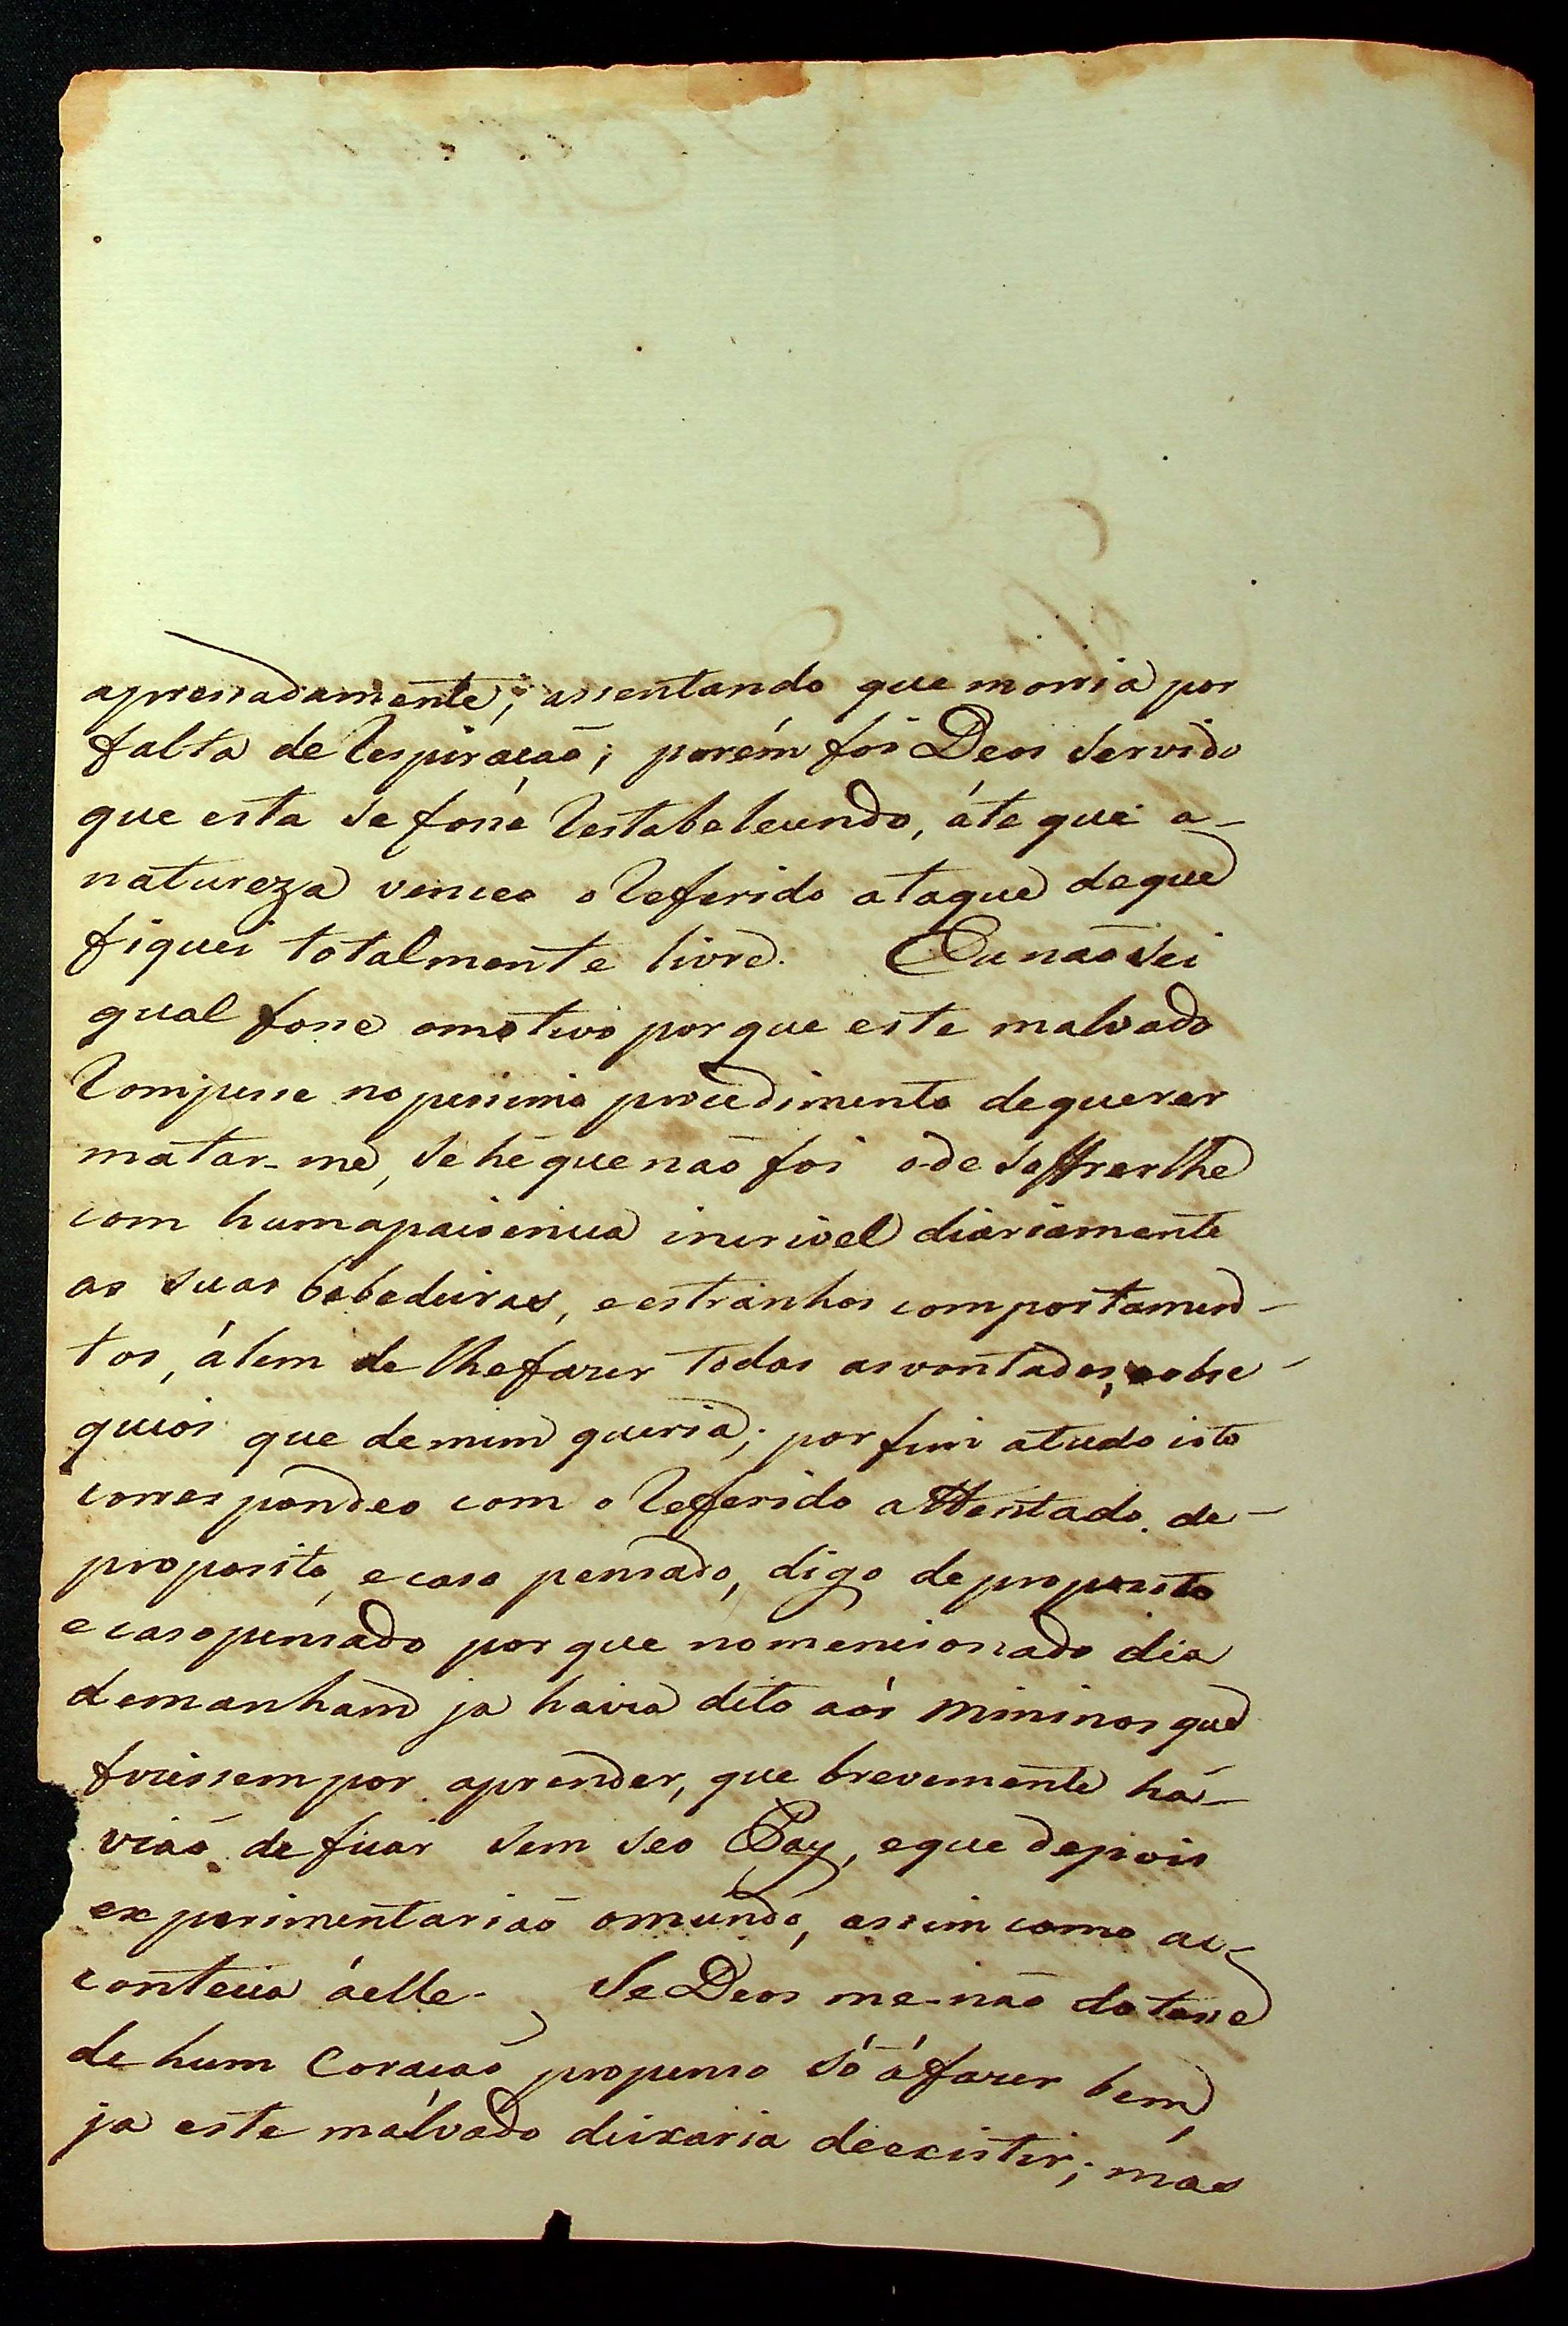 apressadamente; assentando que morria por
falta de Respiração; porém foi Deos Servido
que esta se fosse Restabelecendo, áte que a-
natureza venceo o Referido ataque de que
fiquei totalmente livre. Eu não sei
qual fosse o motivo por que este malvado
Rompesse no pessimo procedimento de querer
matar-me, se hé que não foi o de soffrer lhe
com huma paisencia incrivel diariamente
as suas bebedeiras, e estranhos comportamen-
tos, álem de lhe fazer todas as vontades, e obse-
quios que de mim queria; por fim a tudo isto
correspondeo com o Referido attentado de-
proposito, e caso pensado, digo de proposito
e caso pensado por que no mencionado dia
de manham ja havia dito aós Mininos que
fuiessem por aprender, que brevemente há-
vião de ficar sem seo Pay, e que depois
experimentarião o mundo, assim como ac-
conteceia áelle. Se Deos me não dotasse
de hum Coração propenso só á fazer bem,
ja este malvado deixaria de existir; más